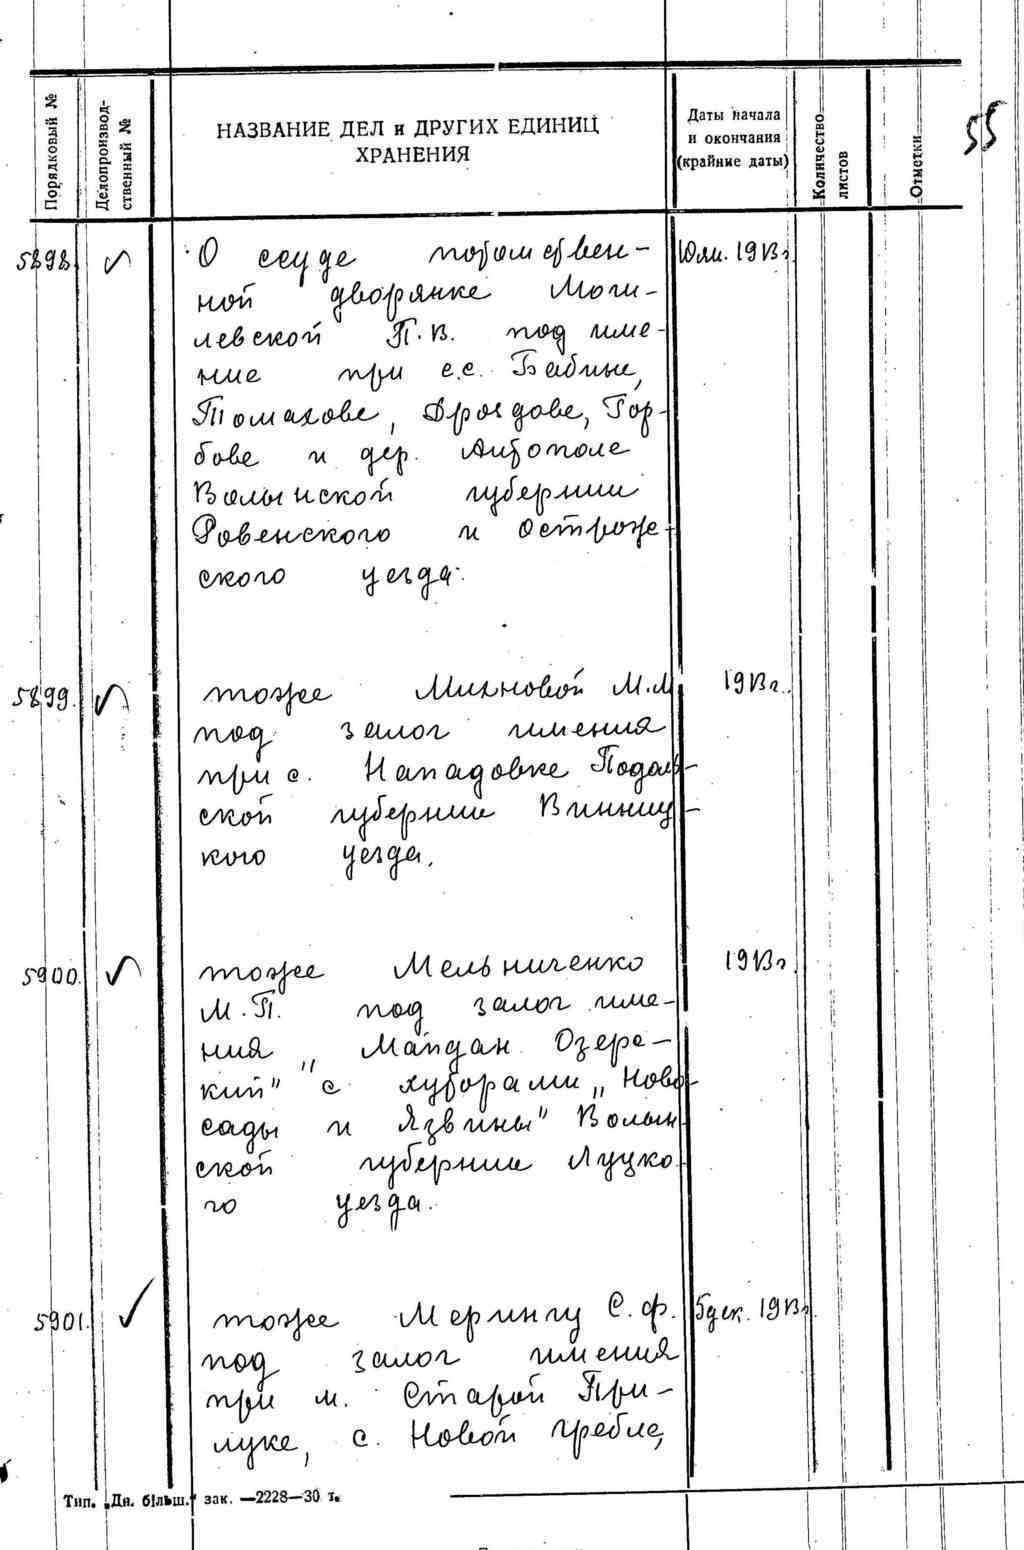 55
Порядковый №
Делопроизвод-
ственный №
НАЗВАНИЕ ДЕЛ и ДРУГИХ ЕДИНИЦ
ХРАНЕНИЯ
Даты начала
и окончания
(крайние даты)
Количество
листов
Отметки
5898 О ссуде потомствен- Юли. 1913 г.
ной дворянке Моги-
левской П. В. под име-
ние при с.с. Бабине,
Томахове, Дроздове, Гор-
бове и дер. Антополе
Волынской губернии
Ровенского и Острож-
ского уезда.
5899. тоже Михновой М. М. 1913 г.
под залог имения
при с. Нападовке Подоль-
ской губернии Винниц-
кого уезда.
5900. тоже Мельниченко 1913 г.
М. П. под залог име-
ния „Майдан Озере-
кий" с хуторами „Ново-
сады и Язвины" Волын-
ской губернии Луцко-
го уезда.
5901. тоже Мерингу С. Ф. 5 дек. 1913 г.
под залог имения
при м. Старой При-
луке, с. Новой гребле,
Тип. „Дн. більш." зак. —2228—30 т.